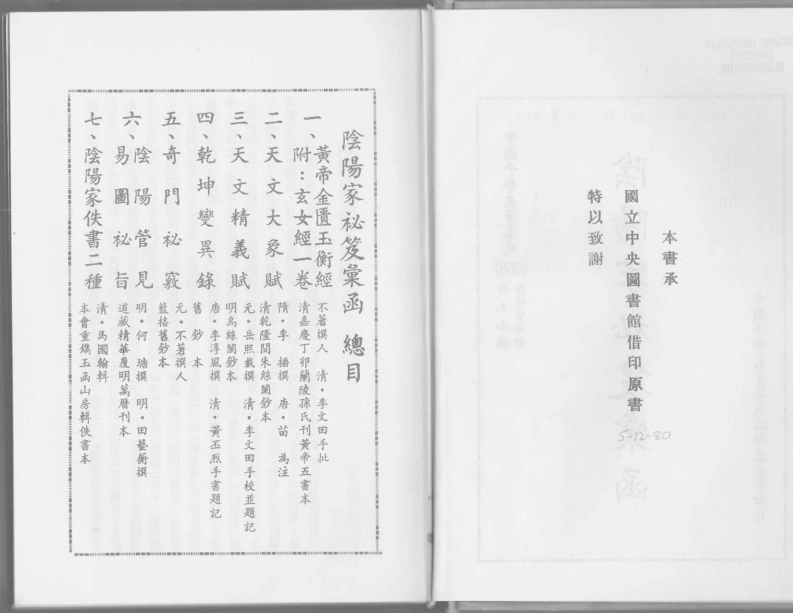 本書承
國立中央圖書館借印原書
特以致謝
5-12-80
陰陽家祕笈彙函 總目
一、黃帝金匱玉衡經
附：玄女經一卷
不著撰人 清・李文田手批
清嘉慶丁卯蘭陵孫氏刊黃帝五書本
二、天文大象賦
隋・李播撰 唐・苗為注
清乾隆間朱絲闌鈔本
三、天文精義賦
元・岳熙載撰 清・李文田手校並題記
明烏絲闌鈔本
四、乾坤變異錄
唐・李淳風撰 清・黃丕烈手書題記
舊鈔本
五、奇門祕竅
元・不著撰人
藍格舊鈔本
六、陰陽管見
易圖祕旨
明・何瑭撰 明・田藝蘅撰
道藏精華覆明萬曆刊本
七、陰陽家佚書二種
清・馬國翰輯
本會重鐫玉函山房輯佚書本